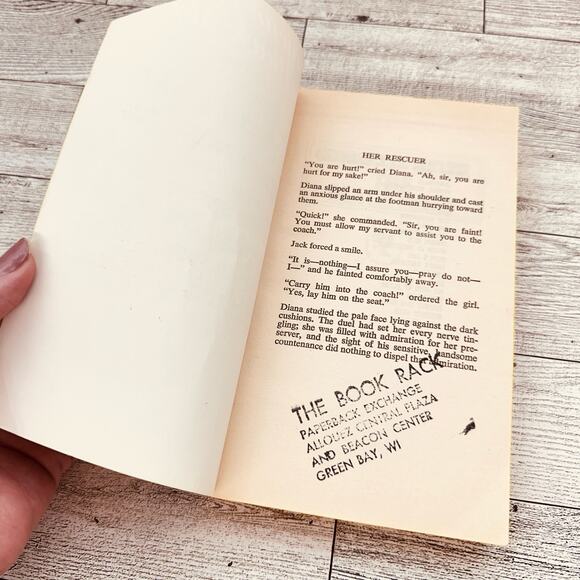 HER RESCUER
"You are hurt!" cried Diana. "Ah, sir, you are
hurt for my sake!"
Diana slipped an arm under his shoulder and cast
an anxious glance at the footman hurrying toward
them.
"Quick!" she commanded. "Sir, you are faint!
You must allow my servant to assist you to the
coach."
Jack forced a smile.
"It is—nothing—I assure you—pray do not—
I—" and he fainted comfortably away.
"Carry him into the coach!" ordered the girl.
"Yes, lay him on the seat."
Diana studied the pale face lying against the dark
cushions. The duel had set her every nerve tin-
gling; she was filled with admiration for her pre-
server, and the sight of his sensitive, handsome
countenance did nothing to dispel the admiration.
THE BOOK RACK
PAPERBACK EXCHANGE
ALLOUEZ CENTRAL PLAZA
AND BEACON CENTER
GREEN BAY, WI